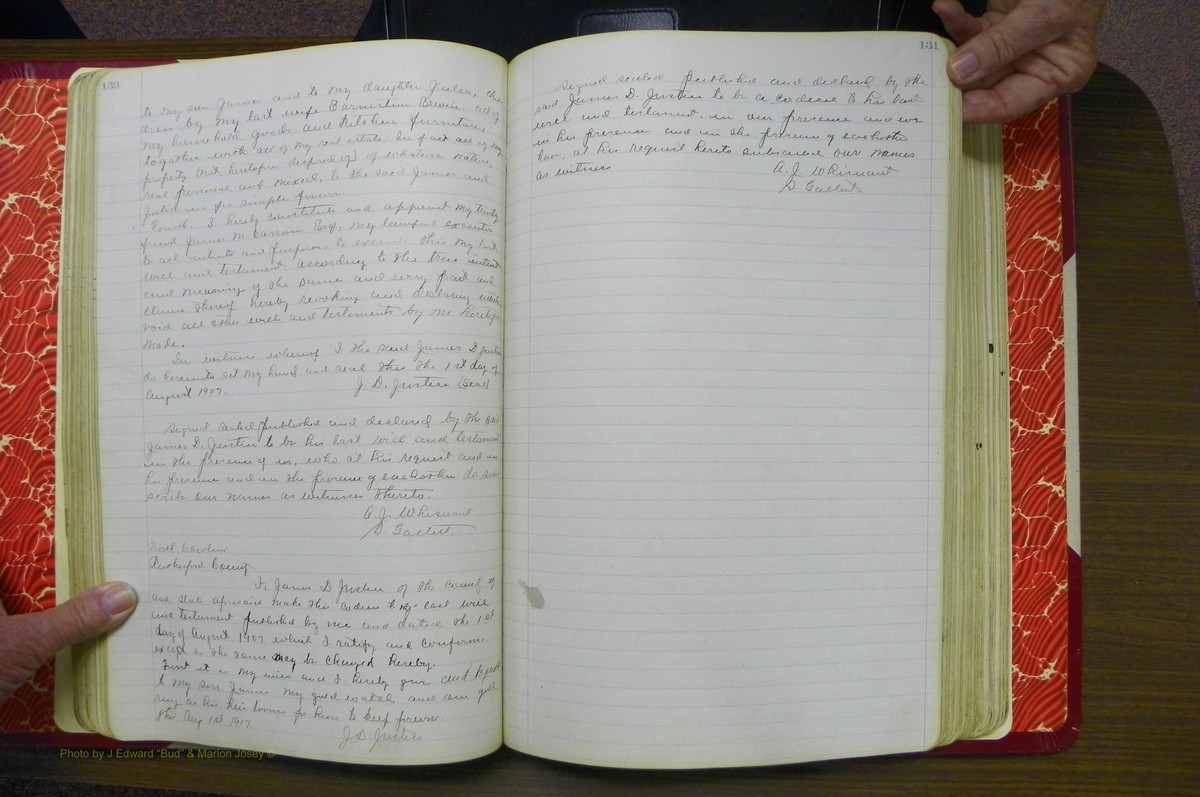 130
to my son James and to my daughter Julia, chil-
dren by my last wife Barnettie Brevin, all of
my house hold goods and Kitchen furniture,
together with all of my real estate. In fact all of my
property not heretofore disposed of of whatever nature,
real personal and mixed, to the said James and
Julia in fee simple forever.
Fourth. I hereby constitute and appoint my trusty
friend James M. Carson Esq, my lawful executor
to all intents and purposes to execute this my last
will and testament according to the true intent
and meaning of the same and every part and
clause thereof hereby revoking and declaring utterly
void all other wills and testiments by me heretofore
made.
In witness whereof I the said James D. Justice
do hereunto set my hand and seal this the 1st day of
August 1907. J. D. Justice (Seal)
Signed sealed published and declared by the said
James D. Justice to be his last will and testament
in the presence of us, who at his request and in
his presence and in the presence of each other do sub-
scribe our names as witnesses thereto.
A. J. Whisnant
S. Gallert.
North Carolina
Rutherford County
I, James D Justice of the County of
and state aforesaid make this codicil to my last will
and testament published by me and dated the 1st
day of August 1907 which I ratify and confirm
except as the same may be changed hereby.
First it is my will and I hereby give and bequeath
to my son James my gold watch and one gold
ring as his heir loom for him to keep forever.
This Aug 1st 1917.
J. D. Justice
131
Signed sealed published and declared by the
said James D. Justice to be a codicil to his last
will and testament in our presence and we
in his presence and in the presence of each other
have at his request hereto subscribed our names
as witness
A. J. Whisnant
S Gallert
Photo by J Edward "Bud" & Marion Josey ©